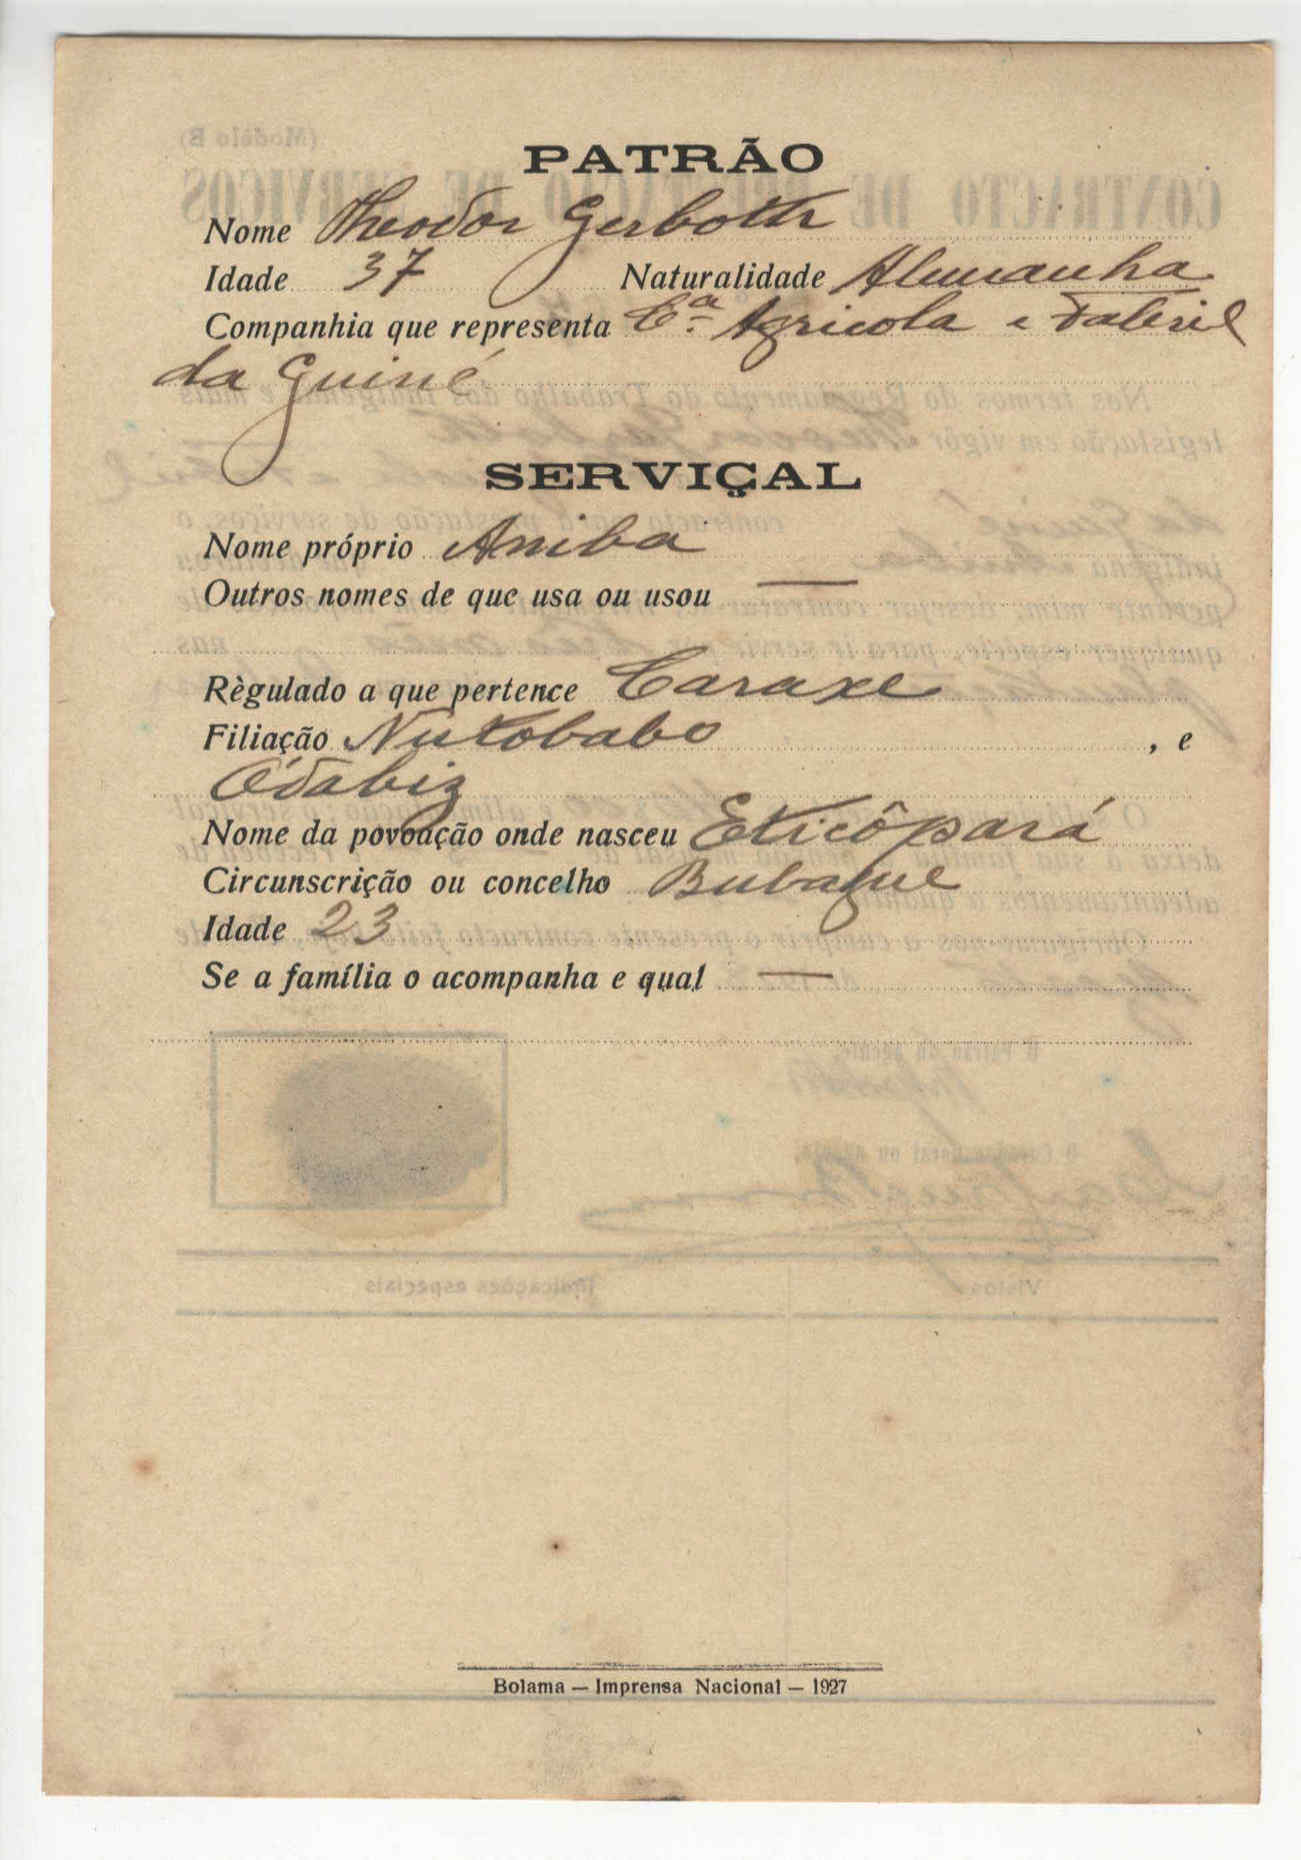 PATRÃO
Nome Theodor Gerboth
Idade 37 Naturalidade Alemanha
Companhia que representa Cª Agricola e Fabril
da Guiné
SERVIÇAL
Nome próprio Aniba
Outros nomes de que usa ou usou —
Règulado a que pertence Caraxe
Filiação Nutobabo , e
Odabiz
Nome da povoação onde nasceu Eticôpará
Circunscrição ou concelho Bubaque
Idade 23
Se a família o acompanha e qual —
Bolama — Imprensa Nacional — 1927